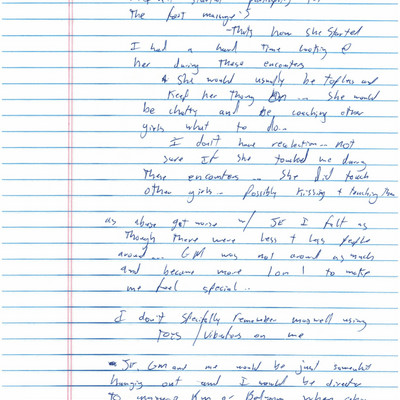 The foot massage's
- That's how she started
I had a hard time looking @
her during these encounters
& She would usually be topless and
keep her thong on... She would
be chatty and be coaching other
girls what to do..
I don't have recollection... not
sure if she touched me during
These encounters... She did touch
other girls... possibly kissing + touching them
as abuse got worse w/ JE I felt as
Though There were less + less people
around... GM was not around as much
and became more 1 on 1 to make
me feel special..
I don't specifically remember maxwell using
Toys / Vibrators on me
JE, GM and me would be just
hanging out and I would be